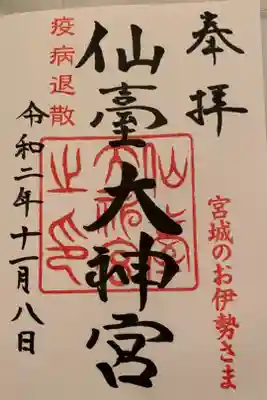 奉拝
宮城のお伊勢さま
仙臺大神宮
疫病退散
令和二年十一月八日